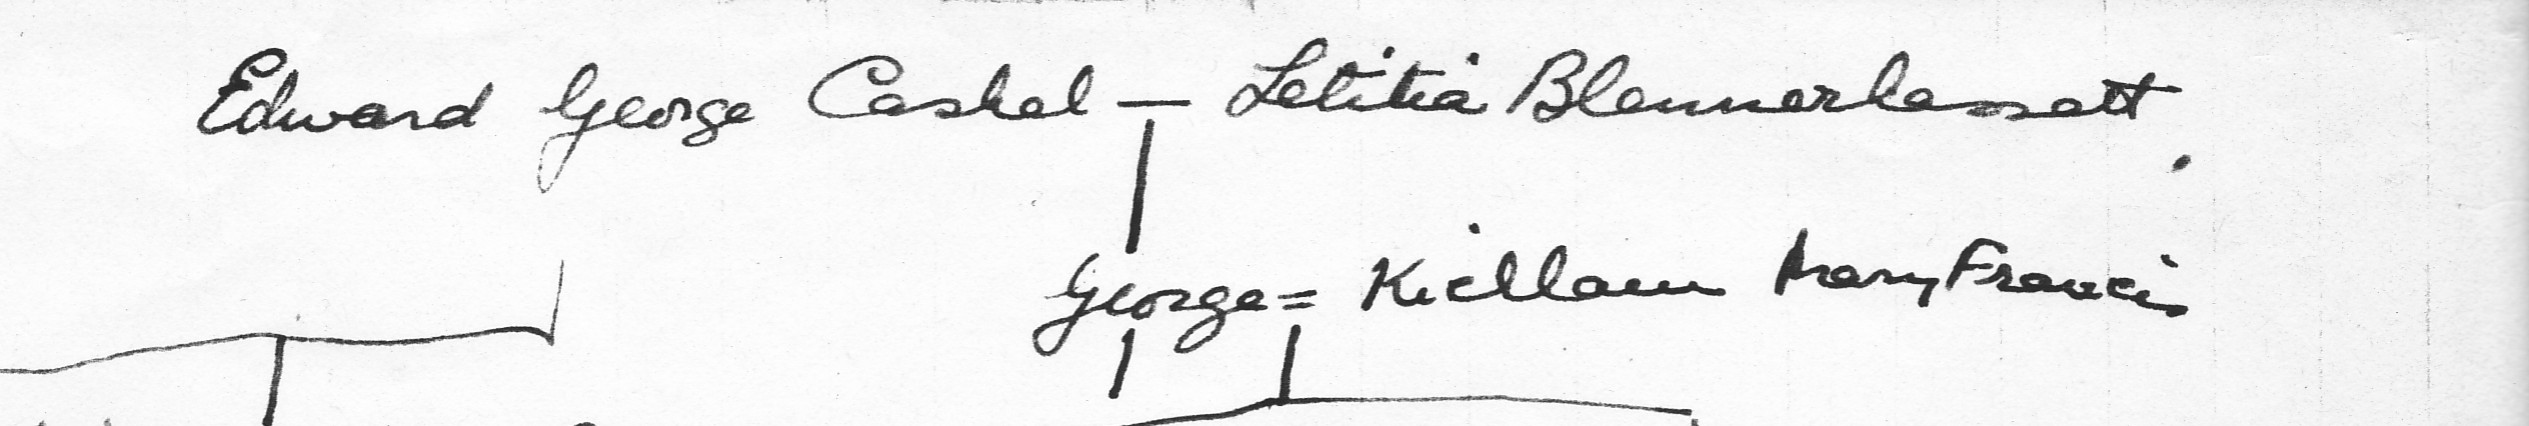 Edward George Cashel — Letitia Blennerhassett
George = Kiellaun Mary Francis